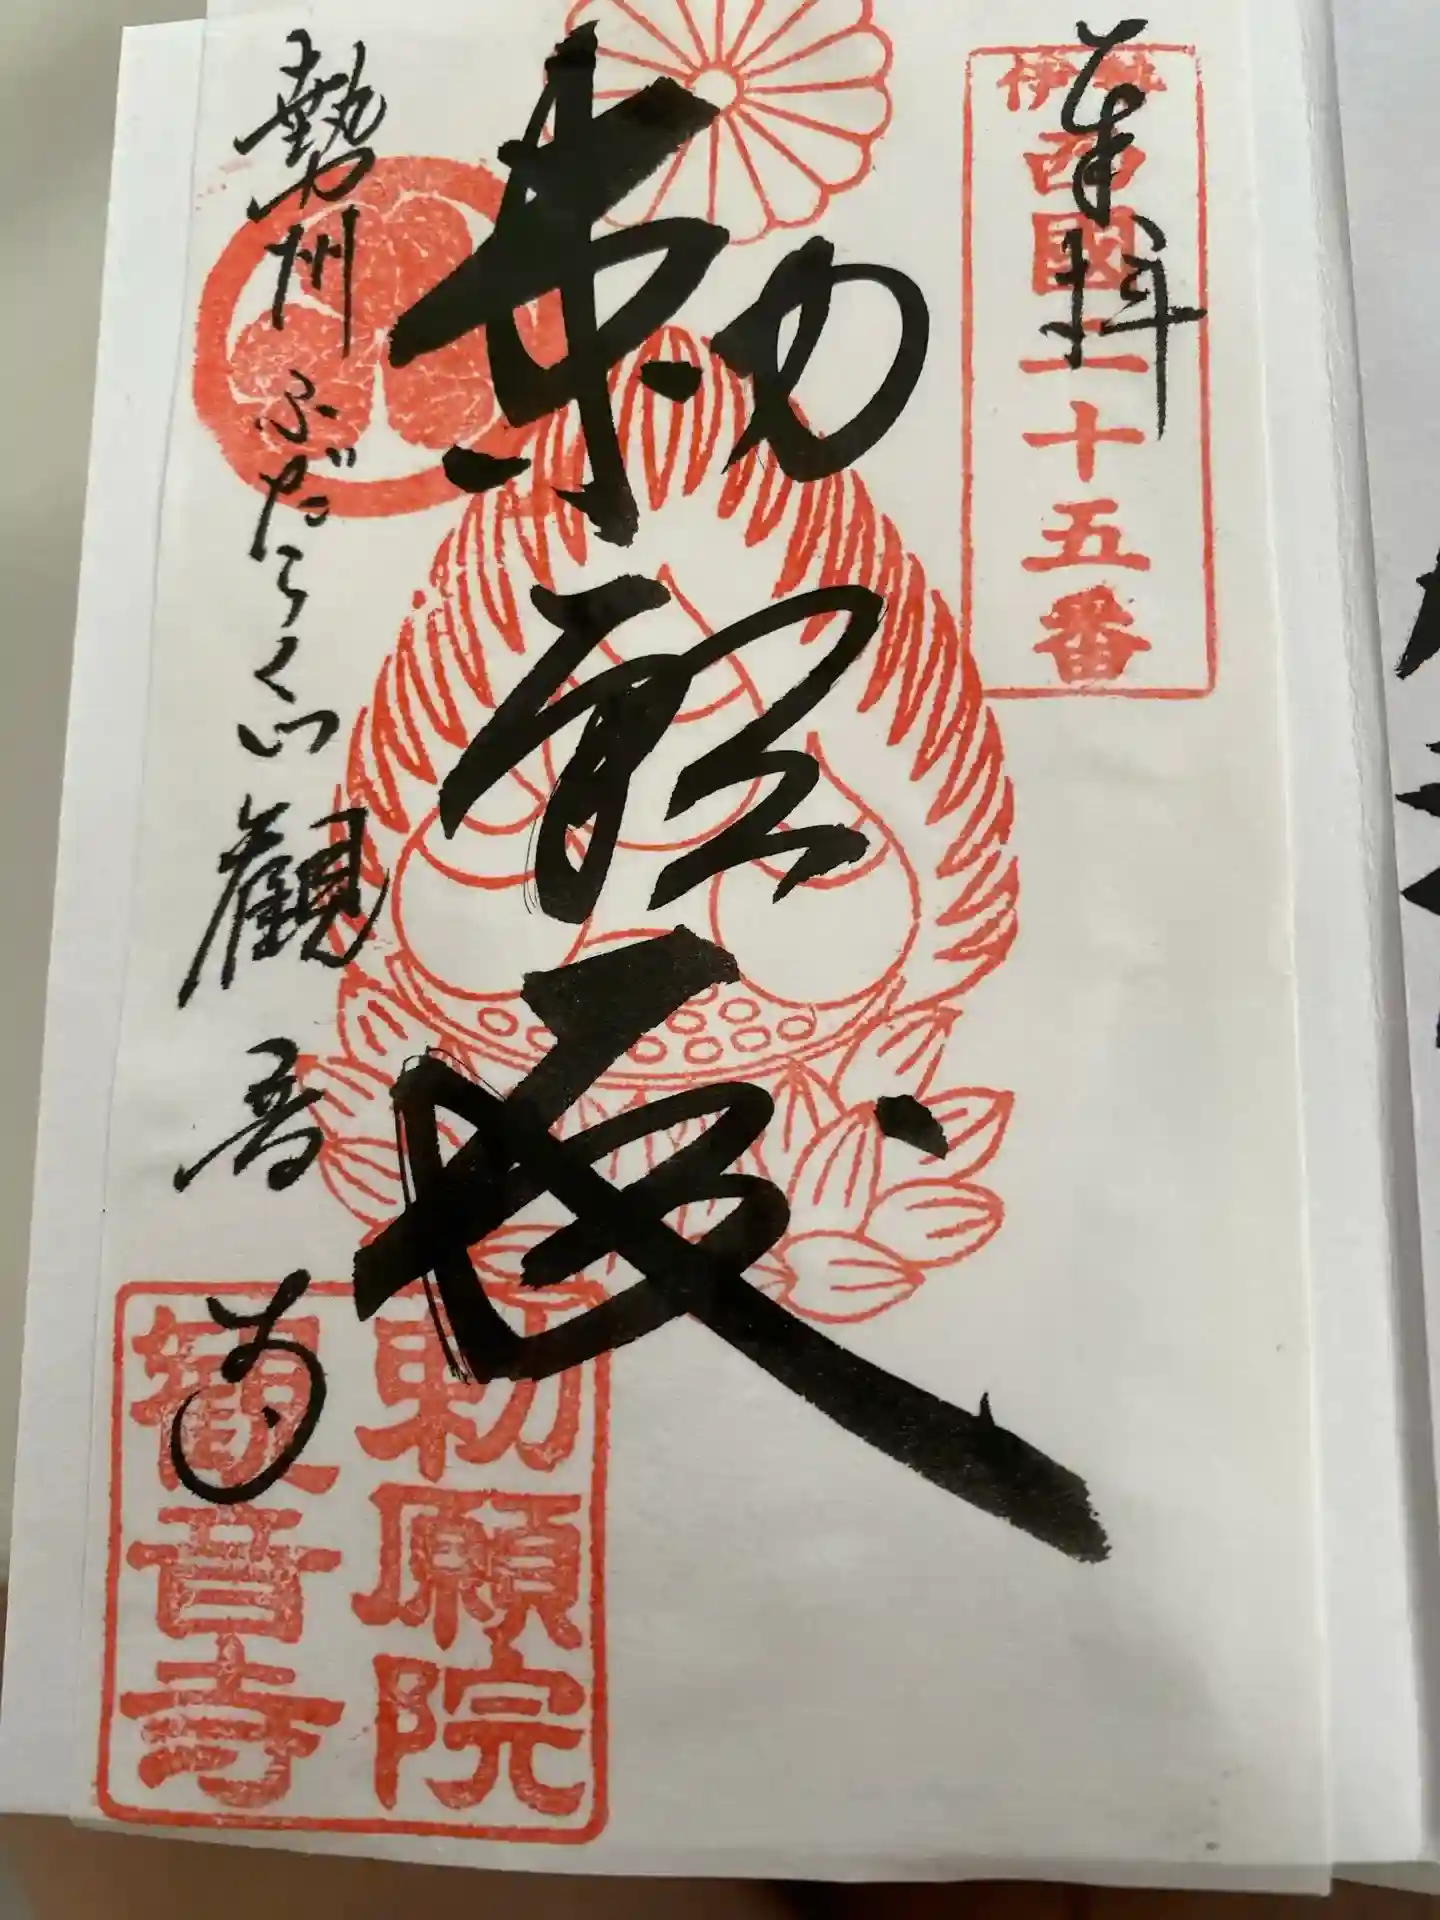 奉拝
伊勢
西國二十五番
勅
勢州 ふだらく山 觀音寺
勅願院
観音寺